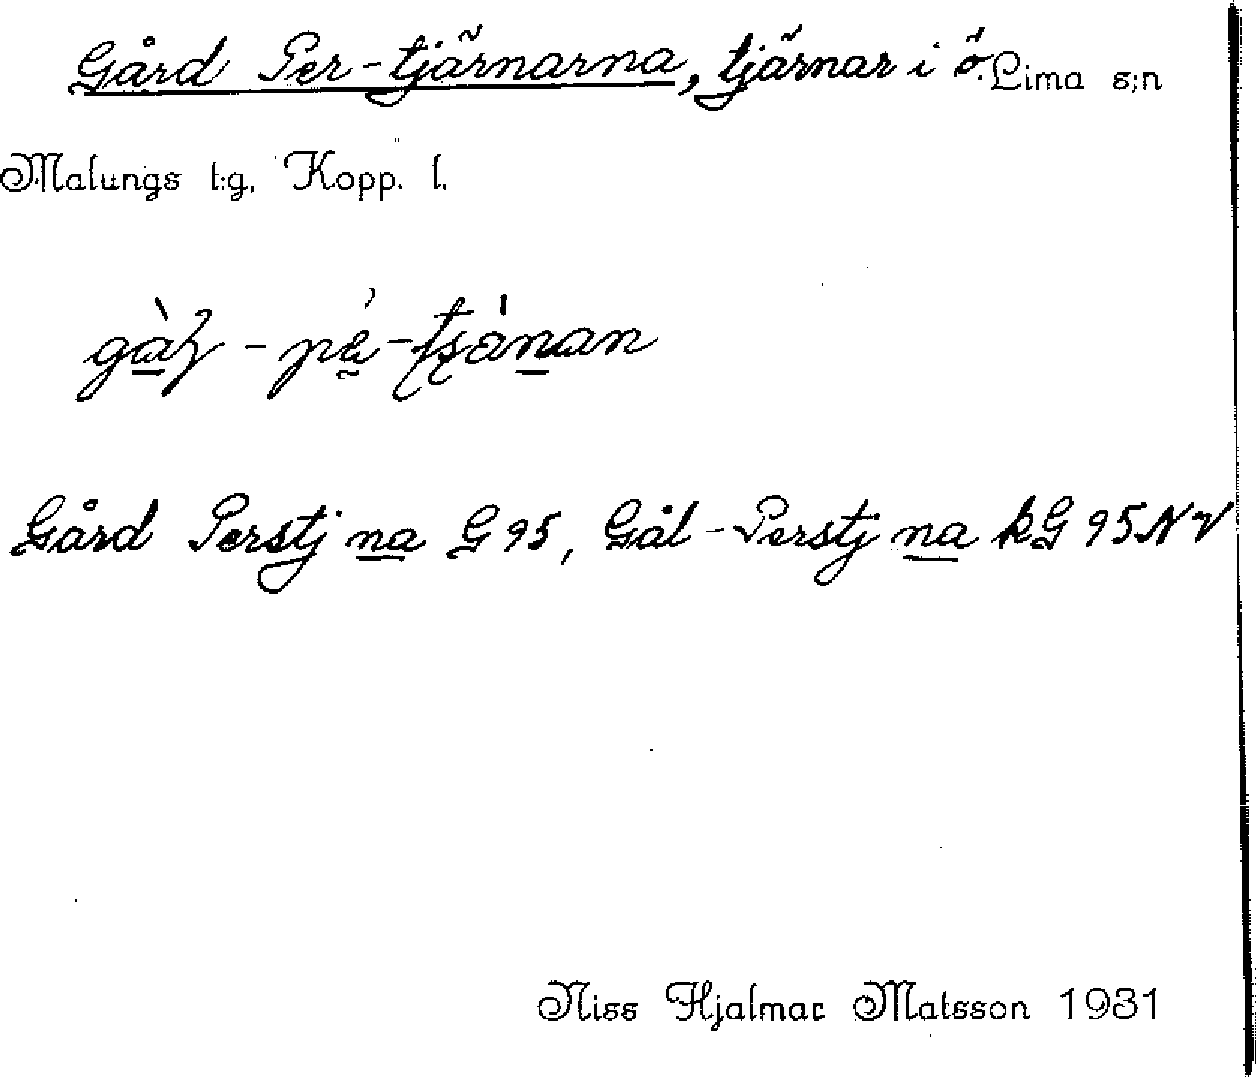 Gård Per-tjärnarna, tjärnar i ö. Lima s:n
Malungs t:g, Kopp. l.
Gård Perstj na G 95, Gål-Perstj na kG 95 NV
Niss Hjalmar Matsson 1931